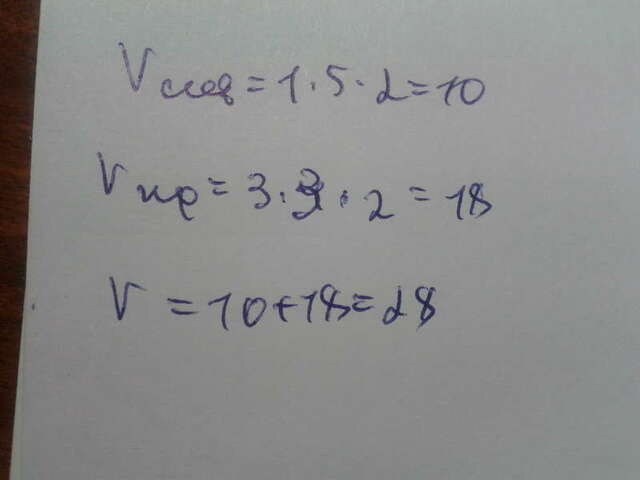 V лев = 1 · 5 · 2 = 10
V пр = 3 · 3 · 2 = 18
V = 10 + 18 = 28